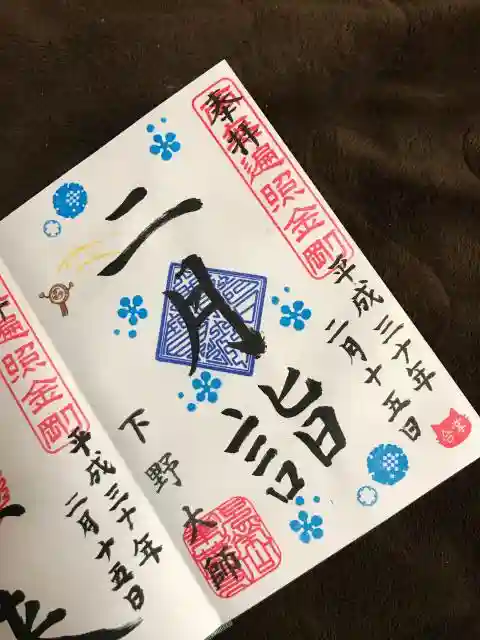 奉拝
南無遍照金剛
平成三十年
二月十五日
二月
詣
下野大師
合掌
遍照金剛
平成三十年
二月十五日